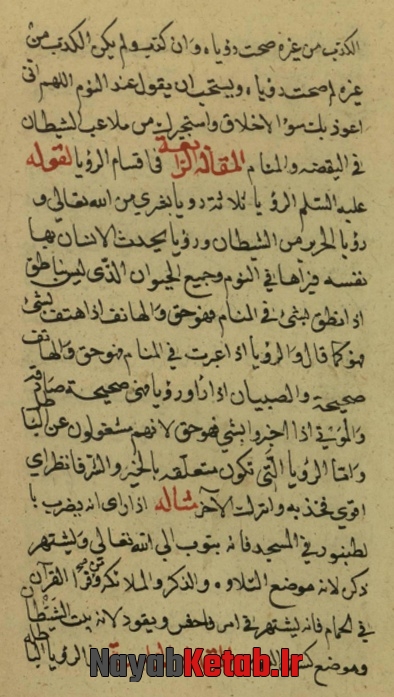 الكذب من غيره صحت رؤياه وان كذب ولم يكن الكذب من
غيره لم صحت رؤياه ويستحب ان يقول عند النوم اللهم اني
اعوذ بك من سوء الاخلاق واستجيرك من ملاعب الشيطان
في اليقضه والمنام المقالة الرابعة في اقسام الرؤيا لقوله
عليه السلم الرؤيا ثلاثة رويا بخرى من الله تعالى و
رؤيا الحزين من الشيطان ورؤيا يحدث الانسان بها
نفسه فيراها في النوم وجميع الحيوان الذي ليس بناطق
اذا نطق بشئ في المنام فهو حق والهاتف اذا هتف بشئ
فهو كما قال والرؤيا اذا عبرت في المنام فهو حق والهاتف
صحيحة والصبيان اذا راوا رؤيا فهي صحيحة صادقه
والموتى اذا اخبروا بشي فهو حق لانهم مشغولون عن
واما الرؤيا التي تكون متعلقه بالخير والشر فانظر اي
اقوى فخذ به واترك الآخر مثاله اذا راى انه يضرب با
لطنبور في المسجد فانه يتوب الى الله تعالى ويشتهر
ذكره لانه موضع التلاوه والذكر والملائكه ومن قرا القرآن
في الحمام فانه يشتهر في امر فاحش ويقود لانه بيت الشيطان
وموضع الرؤيا
NayabKetab.Ir